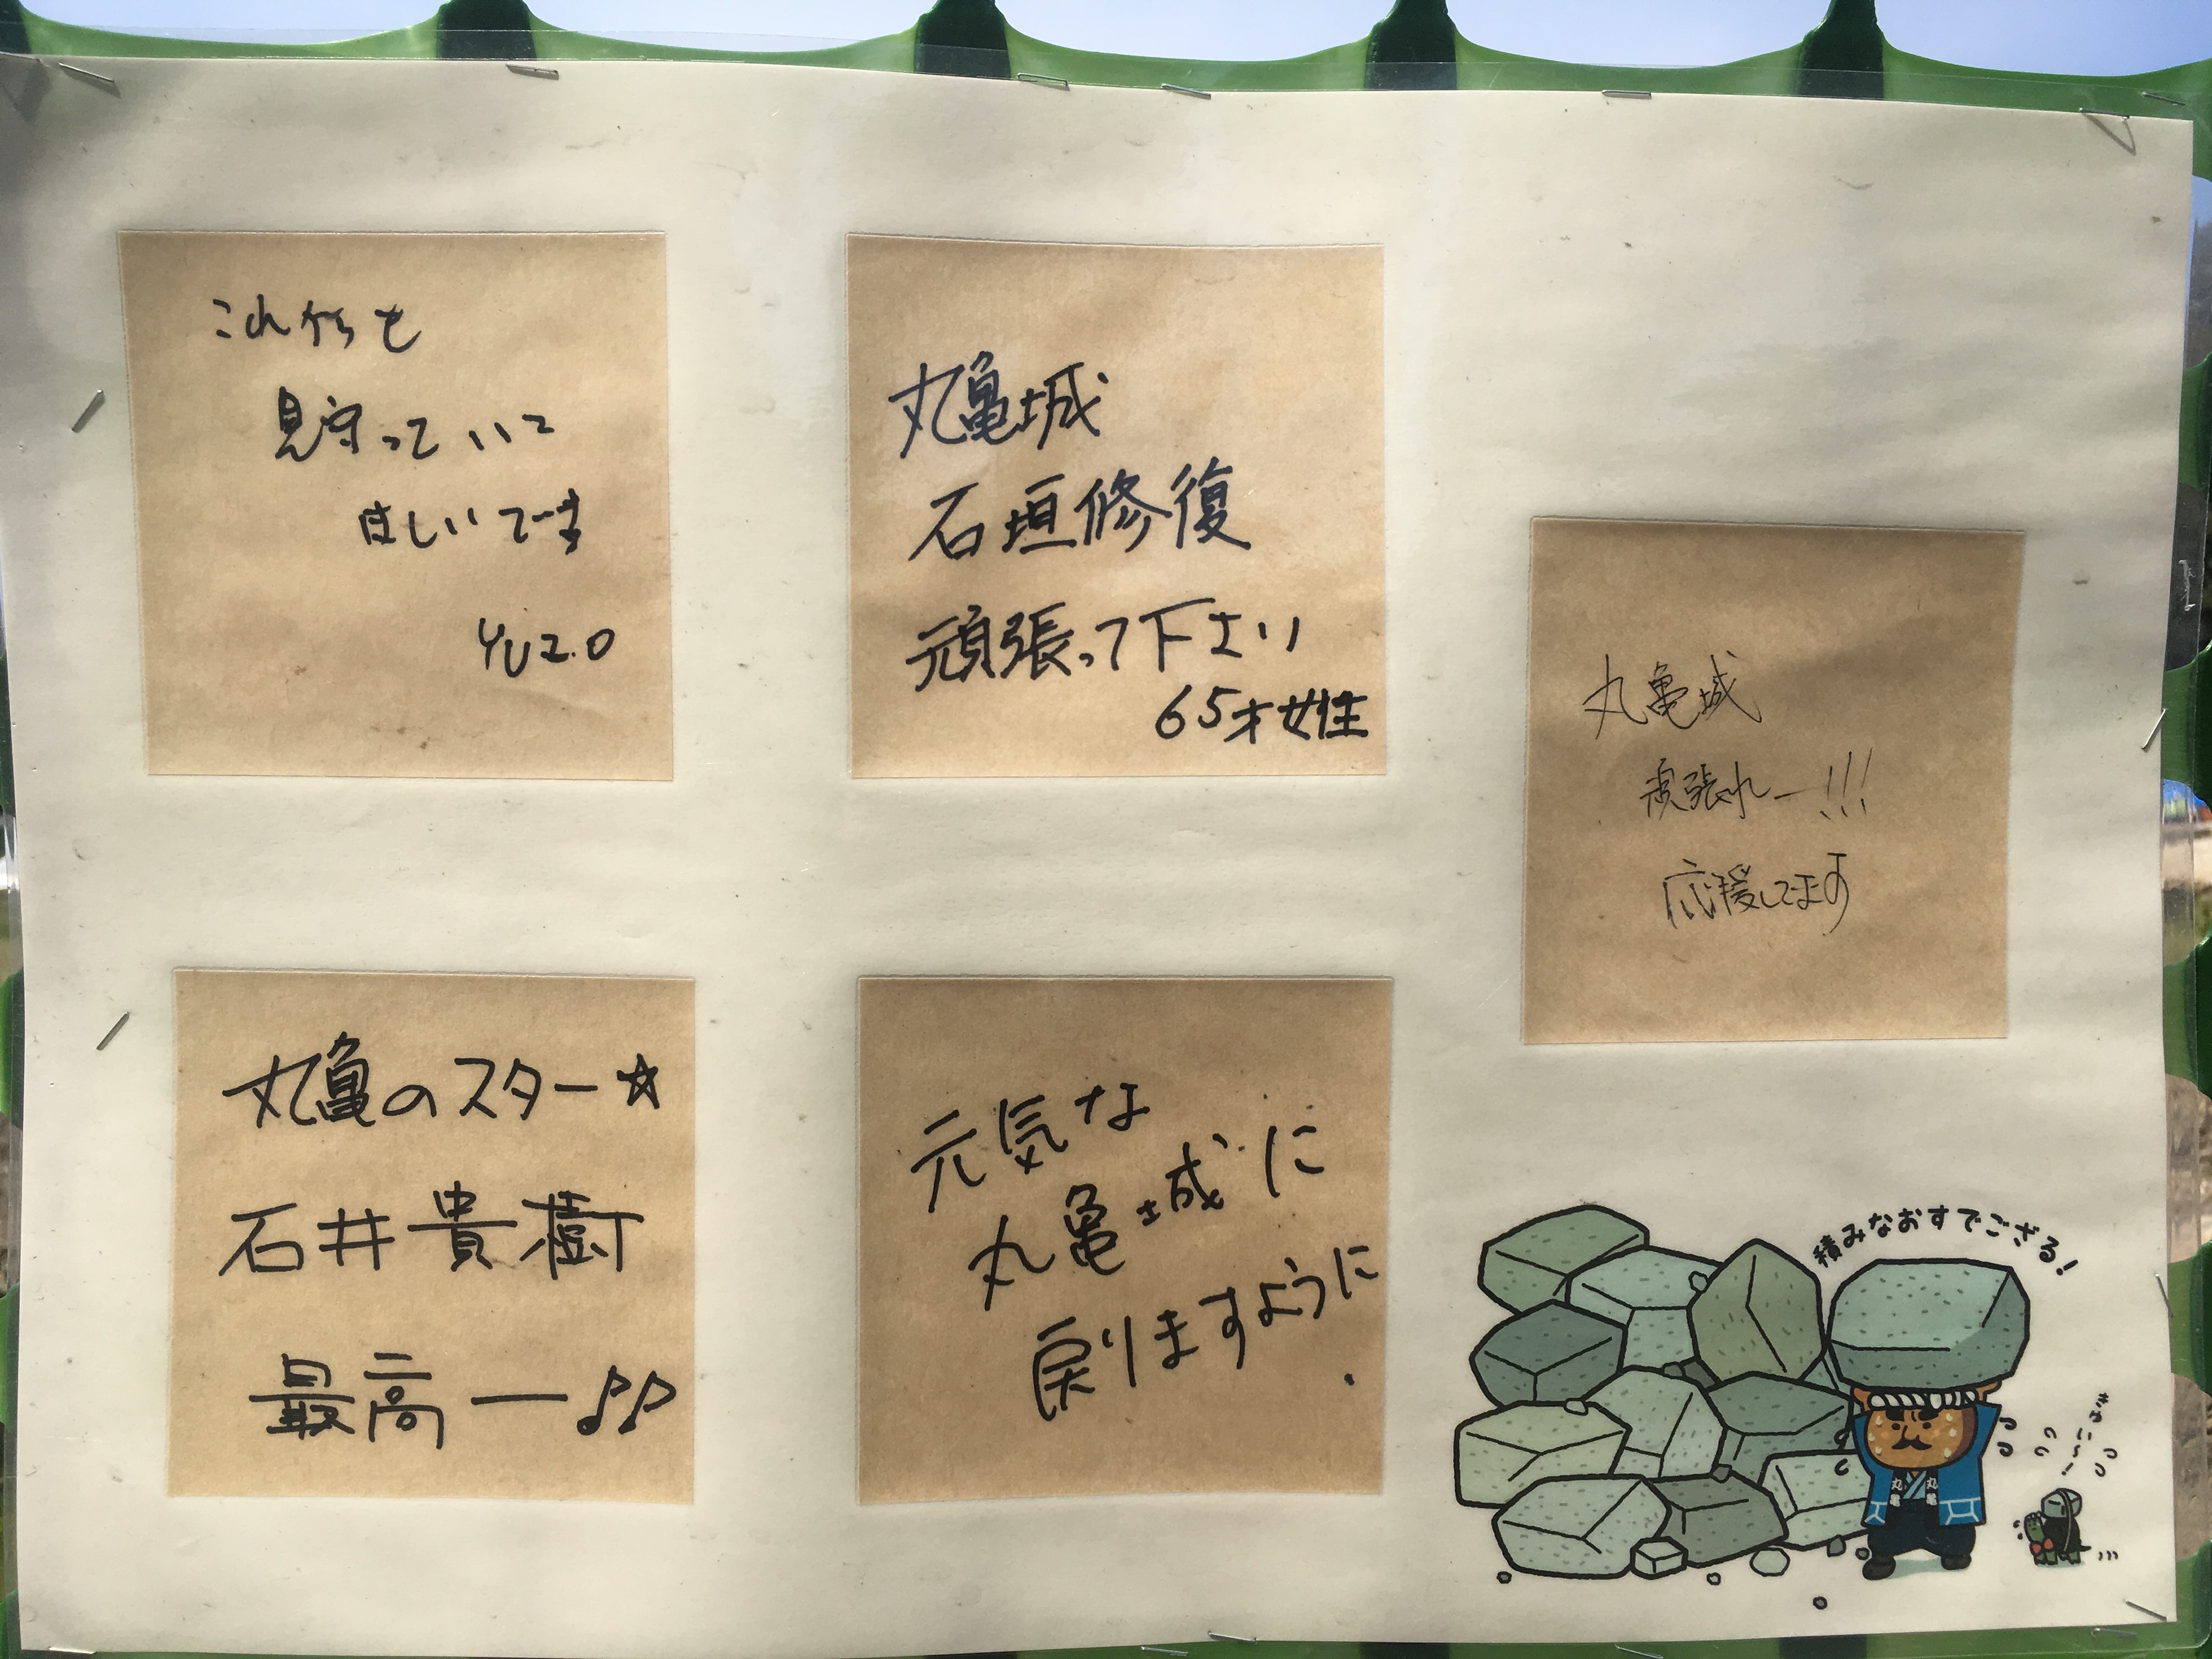 これからも
見守っていて
ほしいです
YU2.0
丸亀城
石垣修復
頑張って下さい
65才女性
丸亀城
頑張れー!!!
応援してます
丸亀のスター☆
石井貴樹
最高ー♪♪
元気な
丸亀城に
戻りますように.
積みなおすでござる!
丸亀
丸亀